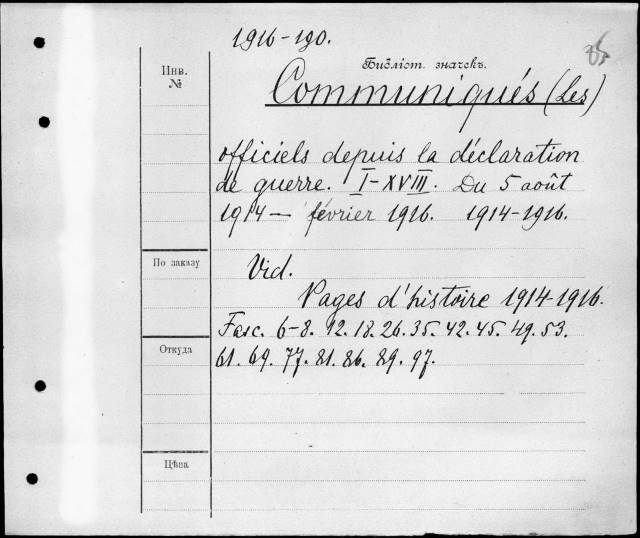 1916-190.
Инв.
№
Библіот. значекъ.
Communiqués (Les)
officiels depuis la déclaration
de guerre. I-XVIII. Du 5 août
1914 — février 1916. 1914-1916.
По заказу
Vid.
Pages d'histoire 1914-1916.
Fasc. 6-8. 12. 18. 26. 35. 42. 45. 49. 53.
Откуда
61. 69. 77. 81. 86. 89. 97.
Цѣна